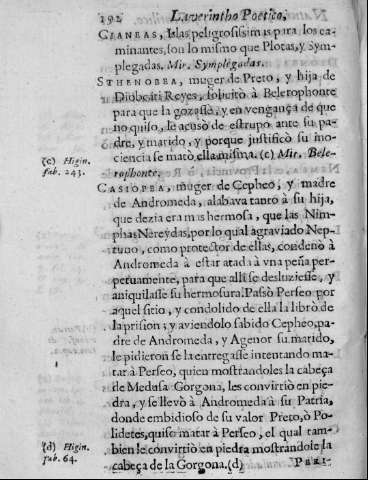 292 Laverintho Poetico,
CIANEAS, Islas peligrosissimas para los ca-
minantes, son lo mismo que Plotas, y Sym-
plegadas. Mir. Symplegadas.
STHENOBEA, muger de Preto, y hija de
Reyes, solicitò à Belerophonte
para que la gozasse, y en vengança de que
no quiso, le acusò de estrupo ante su pa-
dre, y marido, y porque justificò su ino-
ciencia se matò ella misma. (c) Mir. Bele-
rophonte.
(c) Higin.
fab. 243.
CASIOPEA, muger de Cepheo, y madre
de Andromeda, alabava tanto à su hija,
que dezia era mas hermosa, que las Nim-
phas Nereydas, por lo qual agraviado Nep-
tuno, como protector de ellas, condenò à
Andromeda à estar atada à vna peña per-
petuamente, para que alli se desluziesse, y
aniquilasse su hermosura. Passò Perseo por
aquel sitio, y condolido de ella la librò de
la prision; y aviendolo sabido Cepheo, pa-
dre de Andromeda, y Agenor su marido,
le pidieron se la entregasse intentando ma-
tar à Perseo, quien mostrandoles la cabeça
de Medusa Gorgona, les convirtiò en pie-
dra, y se llevò à Andromeda à su Patria,
donde embidioso de su valor Preto, ò Po-
lidetes, quiso matar à Perseo, el qual tam-
bien le convirtiò en piedra mostrandole la
cabeça de la Gorgona. (d)
(d) Higin.
fab. 64.
PERI-